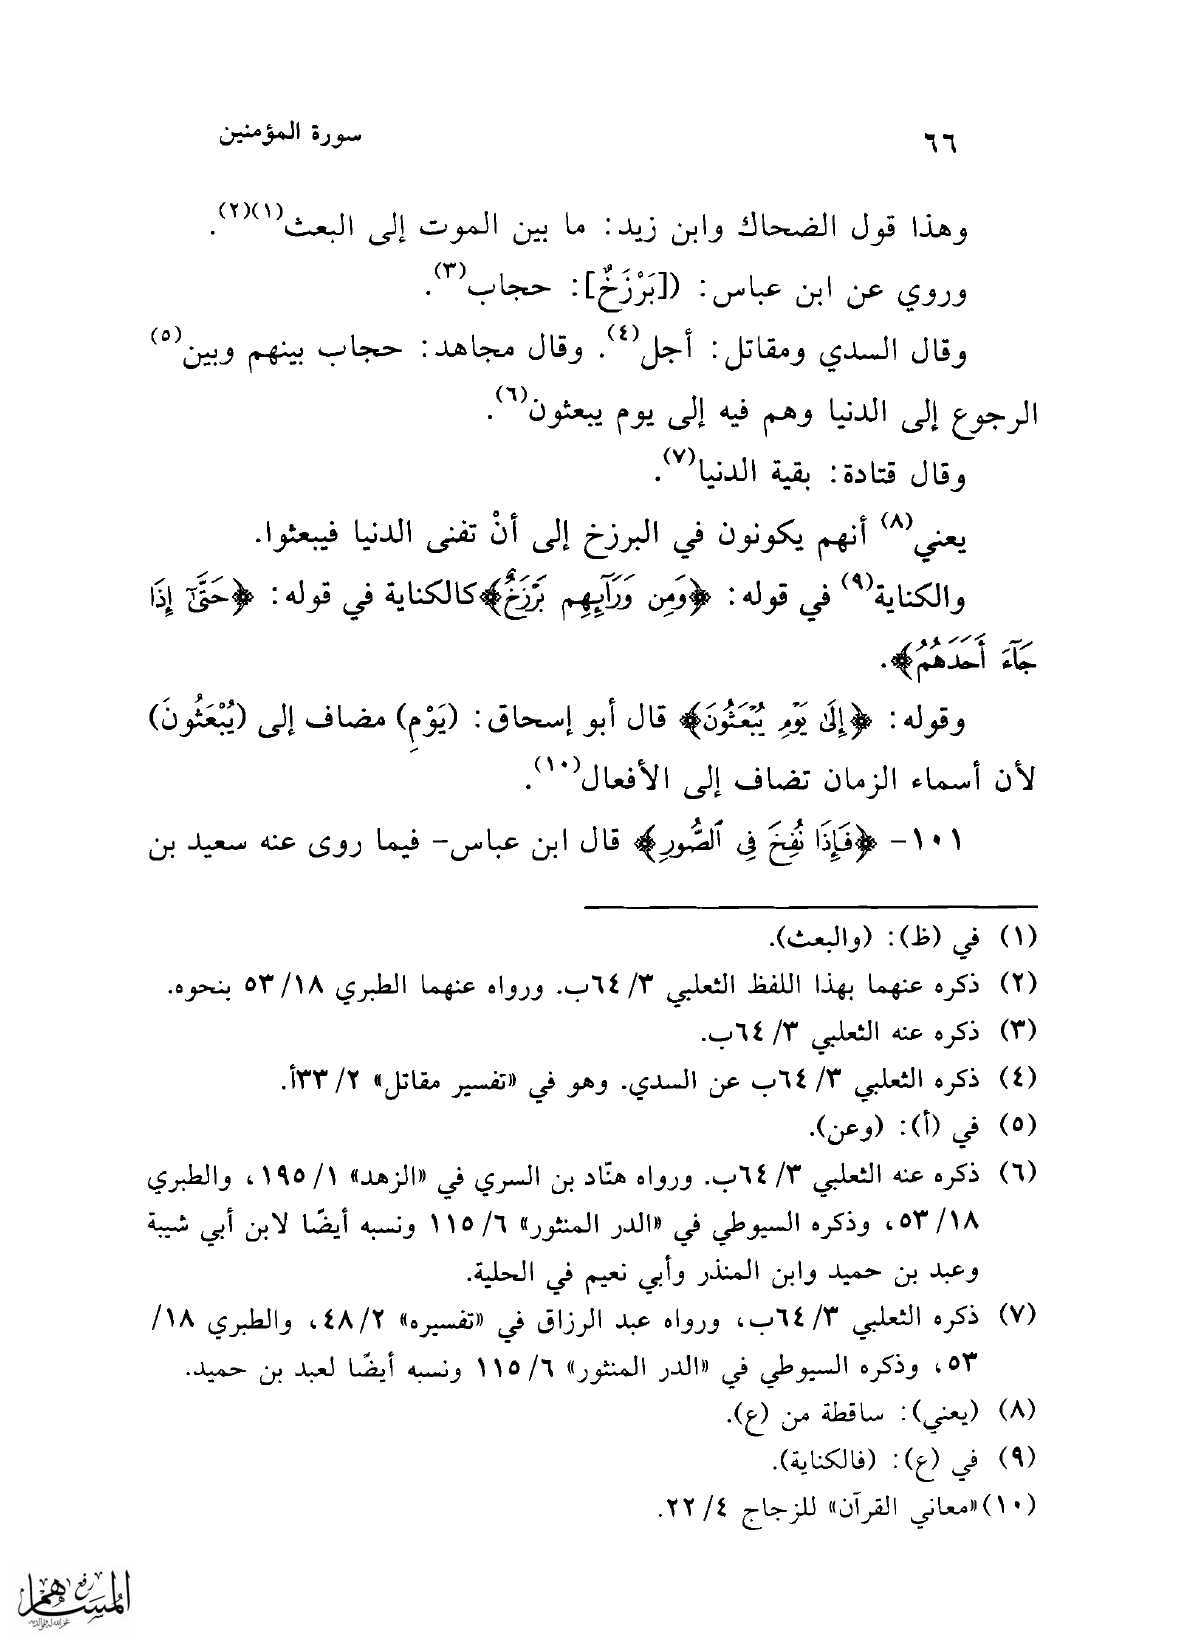 ٦٦
سورة المؤمنين
وهذا قول الضحاك وابن زيد: ما بين الموت إلى البعث(١)(٢).
وروي عن ابن عباس: ([بَرْزَخٌ]: حجاب(٣).
وقال السدي ومقاتل: أجل(٤). وقال مجاهد: حجاب بينهم وبين(٥)
الرجوع إلى الدنيا وهم فيه إلى يوم يبعثون(٦).
وقال قتادة: بقية الدنيا(٧).
يعني(٨) أنهم يكونون في البرزخ إلى أنْ تفنى الدنيا فيبعثوا.
والكناية(٩) في قوله: ﴿وَمِن وَرَآئِهِم بَرْزَخٌ﴾ كالكناية في قوله: ﴿حَتَّىٰٓ إِذَا
جَآءَ أَحَدَهُمُ﴾.
وقوله: ﴿إِلَىٰ يَوْمِ يُبْعَثُونَ﴾ قال أبو إسحاق: (يَوْمِ) مضاف إلى (يُبْعَثُونَ)
لأن أسماء الزمان تضاف إلى الأفعال(١٠).
١٠١- ﴿فَإِذَا نُفِخَ فِى ٱلصُّورِ﴾ قال ابن عباس- فيما روى عنه سعيد بن
(١) في (ظ): (والبعث).
(٢) ذكره عنهما بهذا اللفظ الثعلبي ٣/ ٦٤ب. ورواه عنهما الطبري ١٨/ ٥٣ بنحوه.
(٣) ذكره عنه الثعلبي ٣/ ٦٤ب.
(٤) ذكره الثعلبي ٣/ ٦٤ب عن السدي. وهو في «تفسير مقاتل» ٢/ ٣٣أ.
(٥) في (أ): (وعن).
(٦) ذكره عنه الثعلبي ٣/ ٦٤ب. ورواه هنّاد بن السري في «الزهد» ١/ ١٩٥، والطبري
١٨/ ٥٣، وذكره السيوطي في «الدر المنثور» ٦/ ١١٥ ونسبه أيضًا لابن أبي شيبة
وعبد بن حميد وابن المنذر وأبي نعيم في الحلية.
(٧) ذكره الثعلبي ٣/ ٦٤ب، ورواه عبد الرزاق في «تفسيره» ٢/ ٤٨، والطبري ١٨/
٥٣، وذكره السيوطي في «الدر المنثور» ٦/ ١١٥ ونسبه أيضًا لعبد بن حميد.
(٨) (يعني): ساقطة من (ع).
(٩) في (ع): (فالكناية).
(١٠) «معاني القرآن» للزجاج ٤/ ٢٢.